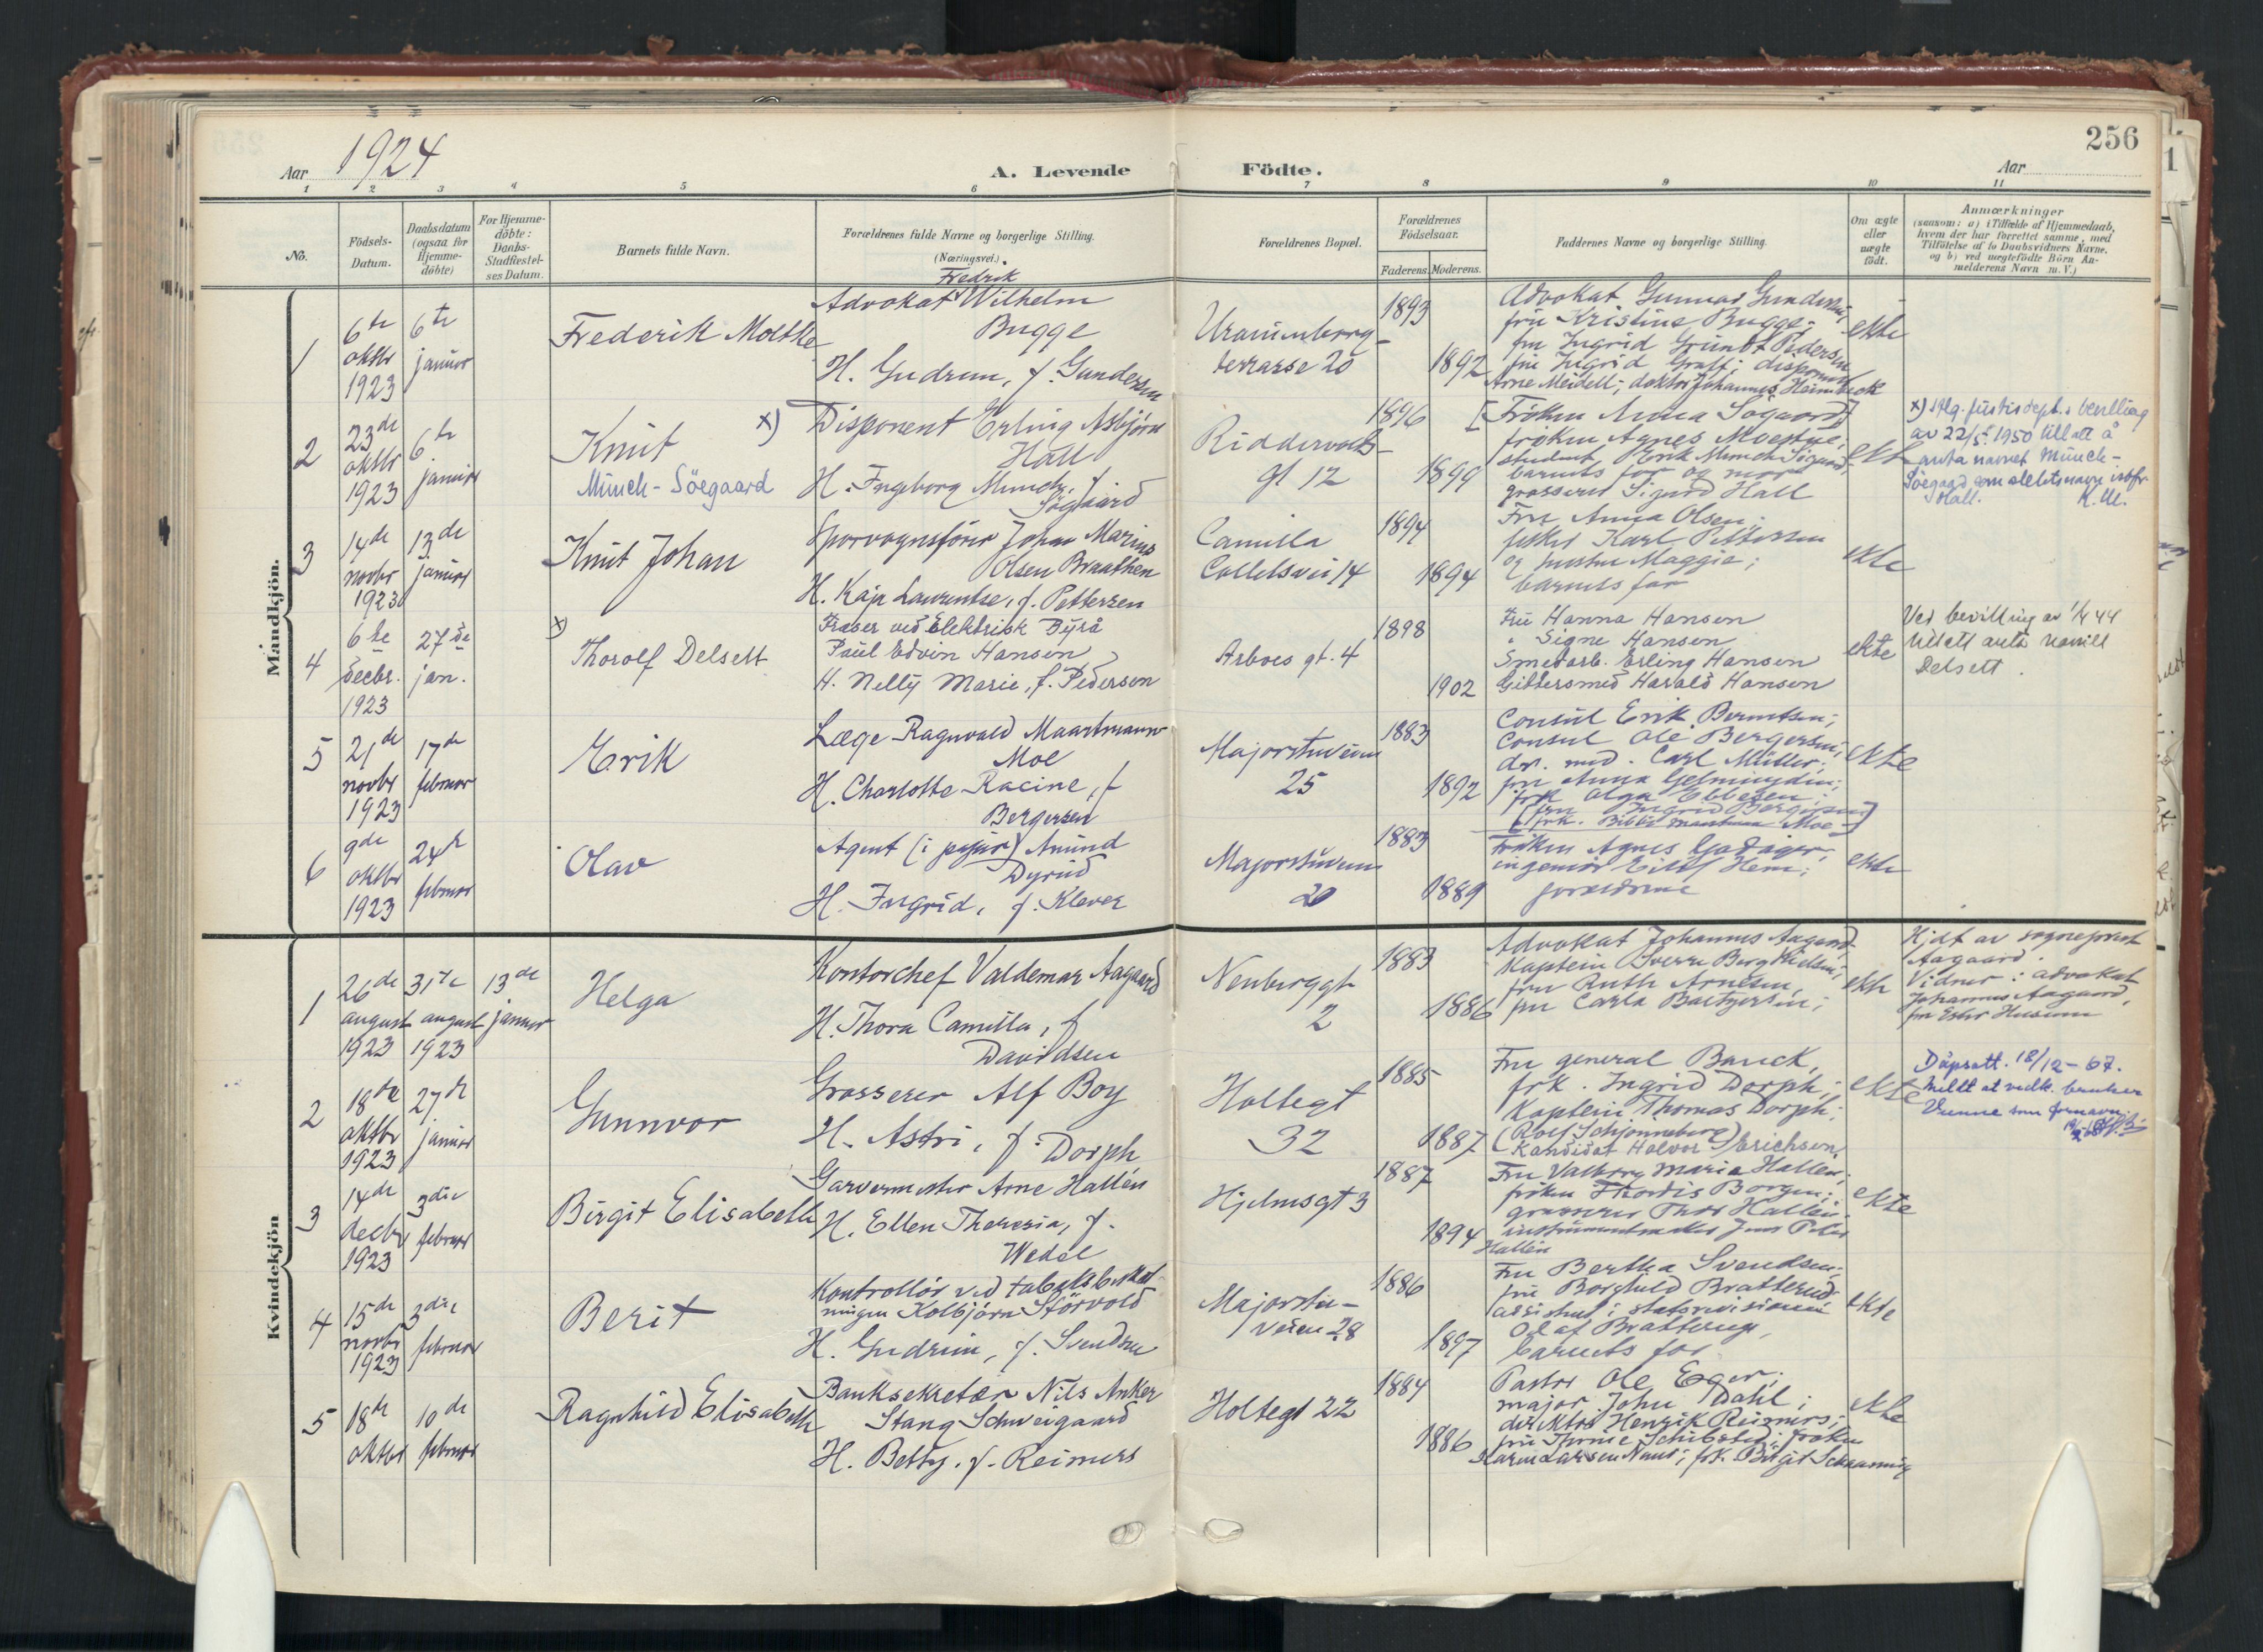 256
Aar 1924
A. Levende Födte.
Aar
1 2 3 4 5 6 7 8 9 10 11
No.
Födsels-Datum.
Daabsdatum (ogsaa for Hjemme-döbte)
For Hjemme-döbte: Daabs-Stadfæstel-ses Datum.
Barnets fulde Navn.
Forældrenes fulde Navne og borgerlige Stilling.
(Næringsvei.)
Forældrenes Bopæl.
Forældrenes Födselsaar.
Faderens. Moderens.
Faddernes Navne og borgerlige Stilling.
Om ægte eller uægte födt.
Anmærkninger
(saasom: a) i Tilfælde af Hjemmedaab,
hvem der har forrettet samme, med
Tilföielse af to Daabsvidners Navne.
og b) ved uægtefödte Börn An-
melderens Navn m. V.)
Mandkjön.
1
6te oktbr 1923
6te januar
Frederik Moltke
Fredrik
Advokat Wilhelm
Bugge
H. Gudrun, f. Gundersen
Uranienborg-
terrasse 20
1893
1892
Advokat Gunnar Gundersen;
fru Kristine Bugge;
fru Ingrid
fru Ingrid
Arne Meidell; doktor Johannes Heimbeck
ekte
2
23de oktbr 1923
6te januar
Knut
Münch-Söegaard
x) Disponent Erling Asbjörn
Hall
H. Ingeborg Munch, f.
Sögaard
Riddervolds-
gt 12
1896
1899
[Fröken Anna Sögaard]
fröken Agnes Moestue;
student Erik Munch Sögaard,
barnets far og mor
grosserer Sigurd Hall
ekte
x) Iflg. justisdept.s bevilling
av 22/5 1950 till att å
anta navnet Münch-
Söegaard som slektsnavn istfr
Hall. K.M.
3
14de novbr 1923
13de januar
Knut Johan
Sporvognsförer Johan Marius
Olsen Braathen
H. Kaja Laurentse, f. Pettersen
Camilla
Colletsvei 14
1894
1894
Fru Anna Olsen;
fisker Karl Pettersen
og hustru Maggie;
barnets far
ekte
4
6te decbr. 1923
27de jan.
x)
Thorolf Delsett
Fræser ved Elektrisk Byrå
Paul Edvin Hansen
H. Nelly Marie, f. Pedersen
Arboes gt. 4
1898
1902
Fru Hanna Hansen
" Signe Hansen
Smedarb. Erling Hansen
Gittersmed Harald Hansen
ekte
Ved bevilling av 1/4 44
tillatt anta navnet
Delsett.
5
21de novbr 1923
17de februar
Erik
Læge Ragnvald Maartmann
Moe
H. Charlotte Racine, f.
Bergersen
Majorstuveien
25
1883
1892
Consul Erik Berntsen;
Consul Ole Bergersen;
dr. med. Carl Müller;
fru Anna
frk Olga Ebbesen;
[fru Ingrid Bergersen]
[frk. Bibbi Maartmann Moe]
ekte
6
9de oktbr 1923
24de februar
Olav
Agent (i papir) Amund
Dyrud
H. Ingrid, f. Klever
Majorstuveien
20
1883
1889
Fröken Agnes
ingeniör Eilif Hem;
foreldrene
ekte
Kvindekjön
1
26de august 1923
31te august 1923
13de januar
Helga
Kontorchef Valdemar Aagaard
H. Thora Camilla, f.
Davidsen
Neuberggt
2
1883
1886
Advokat Johannes Aagaard
Kaptein Sverre Borg Nielsen;
fru Ruth Arnesen,
fru Carla Baetzersen;
ekte
Hjdt av sogneprest
Aagaard.
Vidner: advokat
Johannes Aagaard,
fru Ester Husum
2
18de oktbr 1923
27de januar
Gunnvor
Grosserer Alf Boy
H. Astri, f. Dorph
Holtegt
32
1885
1887
Fru general Bauck,
frk. Ingrid Dorph;
Kaptein Thomas Dorph;
(Rolf Schjönneberg)
Kandidat Halvor Erichsen,
ekte
Dåpsatt. 18/12-67.
Meldt at vedk. bruker
Vunne som fornavn.
3
14de decbr 1923
3die februar
Birgit Elisabeth
Garvermester Arne Hallén
H. Ellen Theresia, f.
Wedel
Hjelmsgt 3
1887
1894
Fru Valborg Maria Hallén;
fröken Thordis Borgen;
grosserer Thor Hallén
instrumentmaker Jens Peter
Hallén
ekte
4
15de novbr 1923
3die februar
Berit
Kontrollör ved tabaksbeskat-
ningen Kolbjörn Störvold
H. Gudrun, f. Svendsen
Majorstu-
veien 28
1886
1897
Fru Bertha Svendsen;
fru Borghild Bratterud
assistent i statsrevisionen
Olaf Bratterud,
barnets far
ekte
5
18de oktbr
10de februar
Ragnhild Elisabeth
Banksekretær Nils Anker
Stang Schweigaard
H. Betty, f. Reimers
Holtegt 22
1884
1886
Pastor Ole Eger;
major John Dahl;
direktör Henrik Reimers;
fru Schibsted; fröken
Karen Larsen Naur; frk. Birgit Schanning
ekte